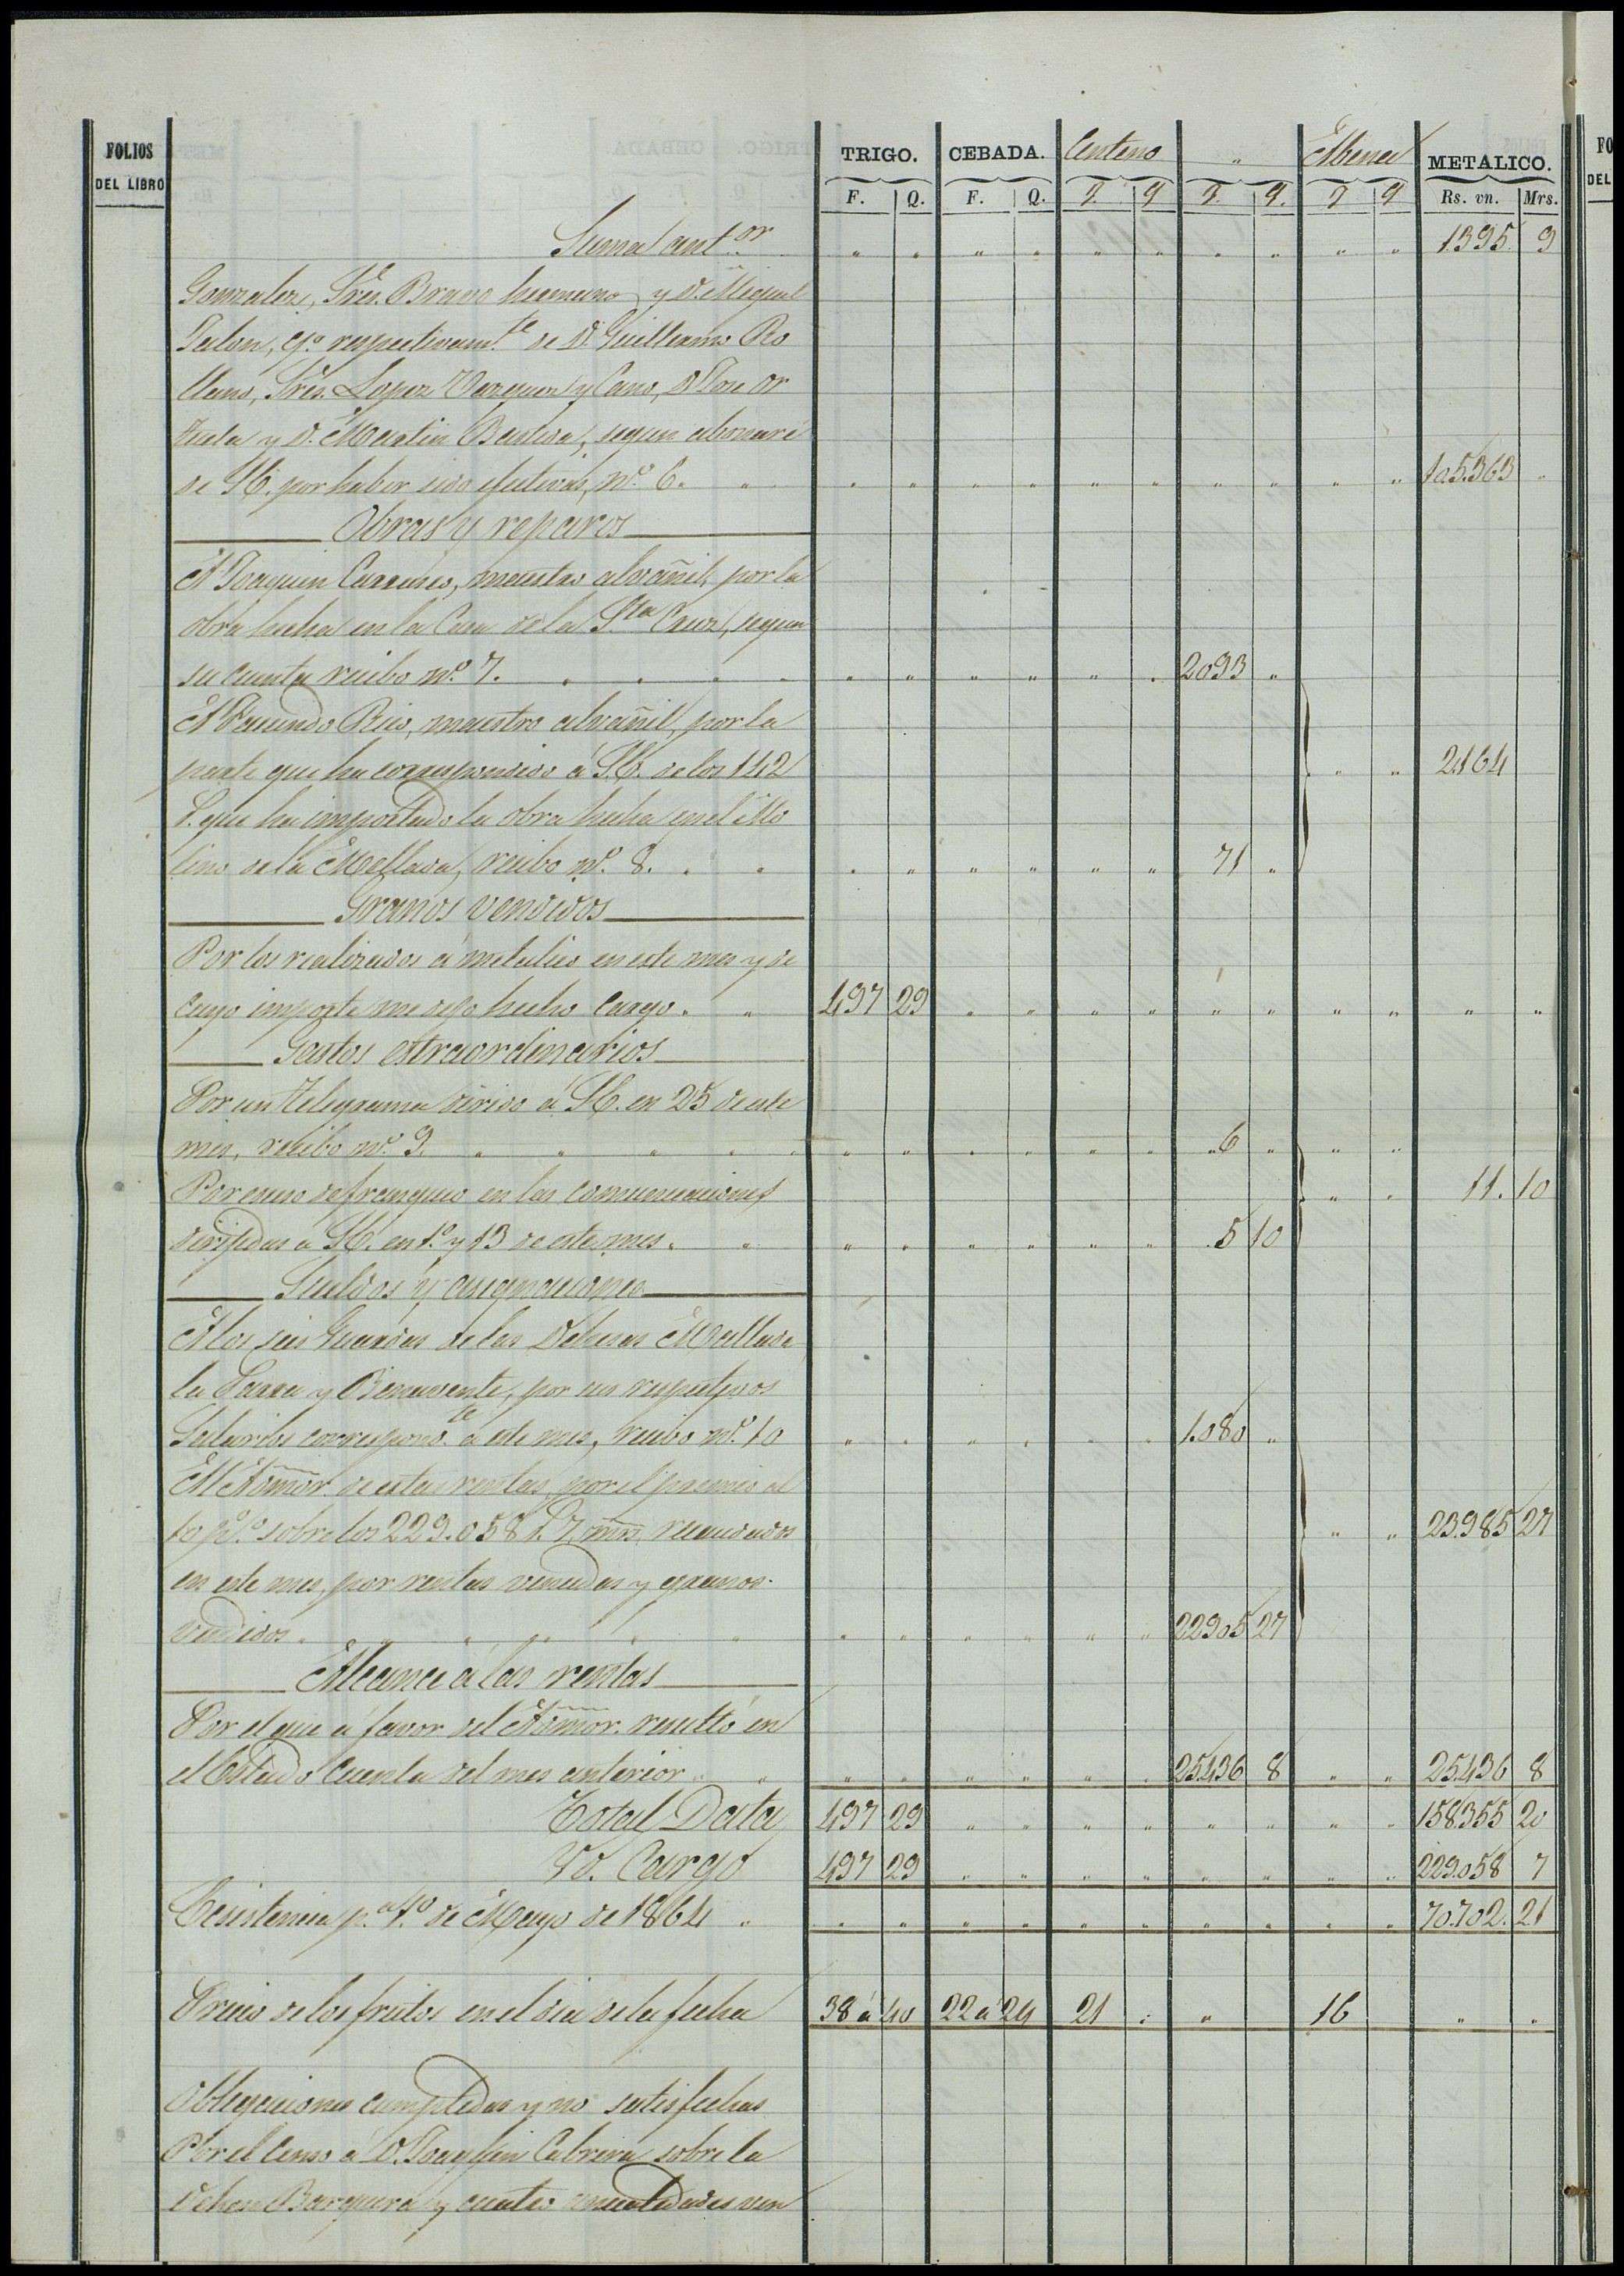 FOLIOS DEL LIBRO TRIGO. CEBADA. Centeno " Abena METALICO.
F. Q. F. Q. F. Q. F. Q. F. Q. Rs. vn. Mrs.
Suma ant.or " " " " " " " " " " 1.395 9
Gonzalez, Sres. Bravo hermano y D. Miguel
respectivam.te de D. Guillermo Ro
llano, Sres. Lopez Vazquez y Cano, D. Jose Or
tuela y D. Martin Bastida, segun abonaré
de S.E. por haber sido efectivas, n.º 6. " " " " " " " " " " " 105.363 "
Obras y reparos
A Joaquin Carreño, maestro albañil, por la
obra hecha en la Casa de la S.ta Cruz, segun
su cuenta recibo n.º 7. " " " " " " 2093 "
A Facundo Rico, maestro albañil, por la
parte que ha correspondido á S.E. de los 142 " " 2.164
r. que ha importado la obra hecha en el Mo
lino de la Mellada, recibo n.º 8. " " " " " " 71 "
Granos vendidos
Por los realizados á metalico en este mes y de
cuyo importe me dejo hecho cargo. " 497 29 " " " " " " " " " "
Gastos estraordinarios
Por un telegrama dirido á S.E. en 25 de este
mes, recibo n.º 9. " " " " " " 6 " " "
Por esceso de franqueo en las comunicaciones " " 11. 10
dirijidas á S.E. en 1.º y 13 de este mes. " " " " " " " 5 10
Sueldos y asignaciones
A los seis Guardas de las Dehesas Mellada
la Parra y Benavente, por sus respectivos
Salarios correspond.te á este mes, recibo n.º 10 " " " " " " 1.080 "
Al Admor. de estas rentas, por el premio al
10 p.º/o sobre los 229.058 r. 7 mrs. recaudados " " 23.985 27
en este mes, por rentas vencidas y granos
vendidos. " " " " " " 22905 27
Alcance á las rentas
Por el que á favor del Admor. resultó en
el Estado Cuenta del mes anterior " " " " " " " 25.436 8 " " 25.436 8
Total Data 497 29 " " " " " " " " 158.355 20
Yd. Cargo 497 29 " " " " " " " " 229.058 7
Ecsistencia p.a 1.º de Mayo de 1864 " " " " " " " " " " " 70.702. 21
Precio de los frutos en el dia de la fecha 38 á 40 22 á 24 21 " " 16 " "
Obligaciones cumplidas y no satisfechas
Por el Censo á D. Joaquin Cabrera sobre la
Dehesa Barquera y cuatro anualidades ven